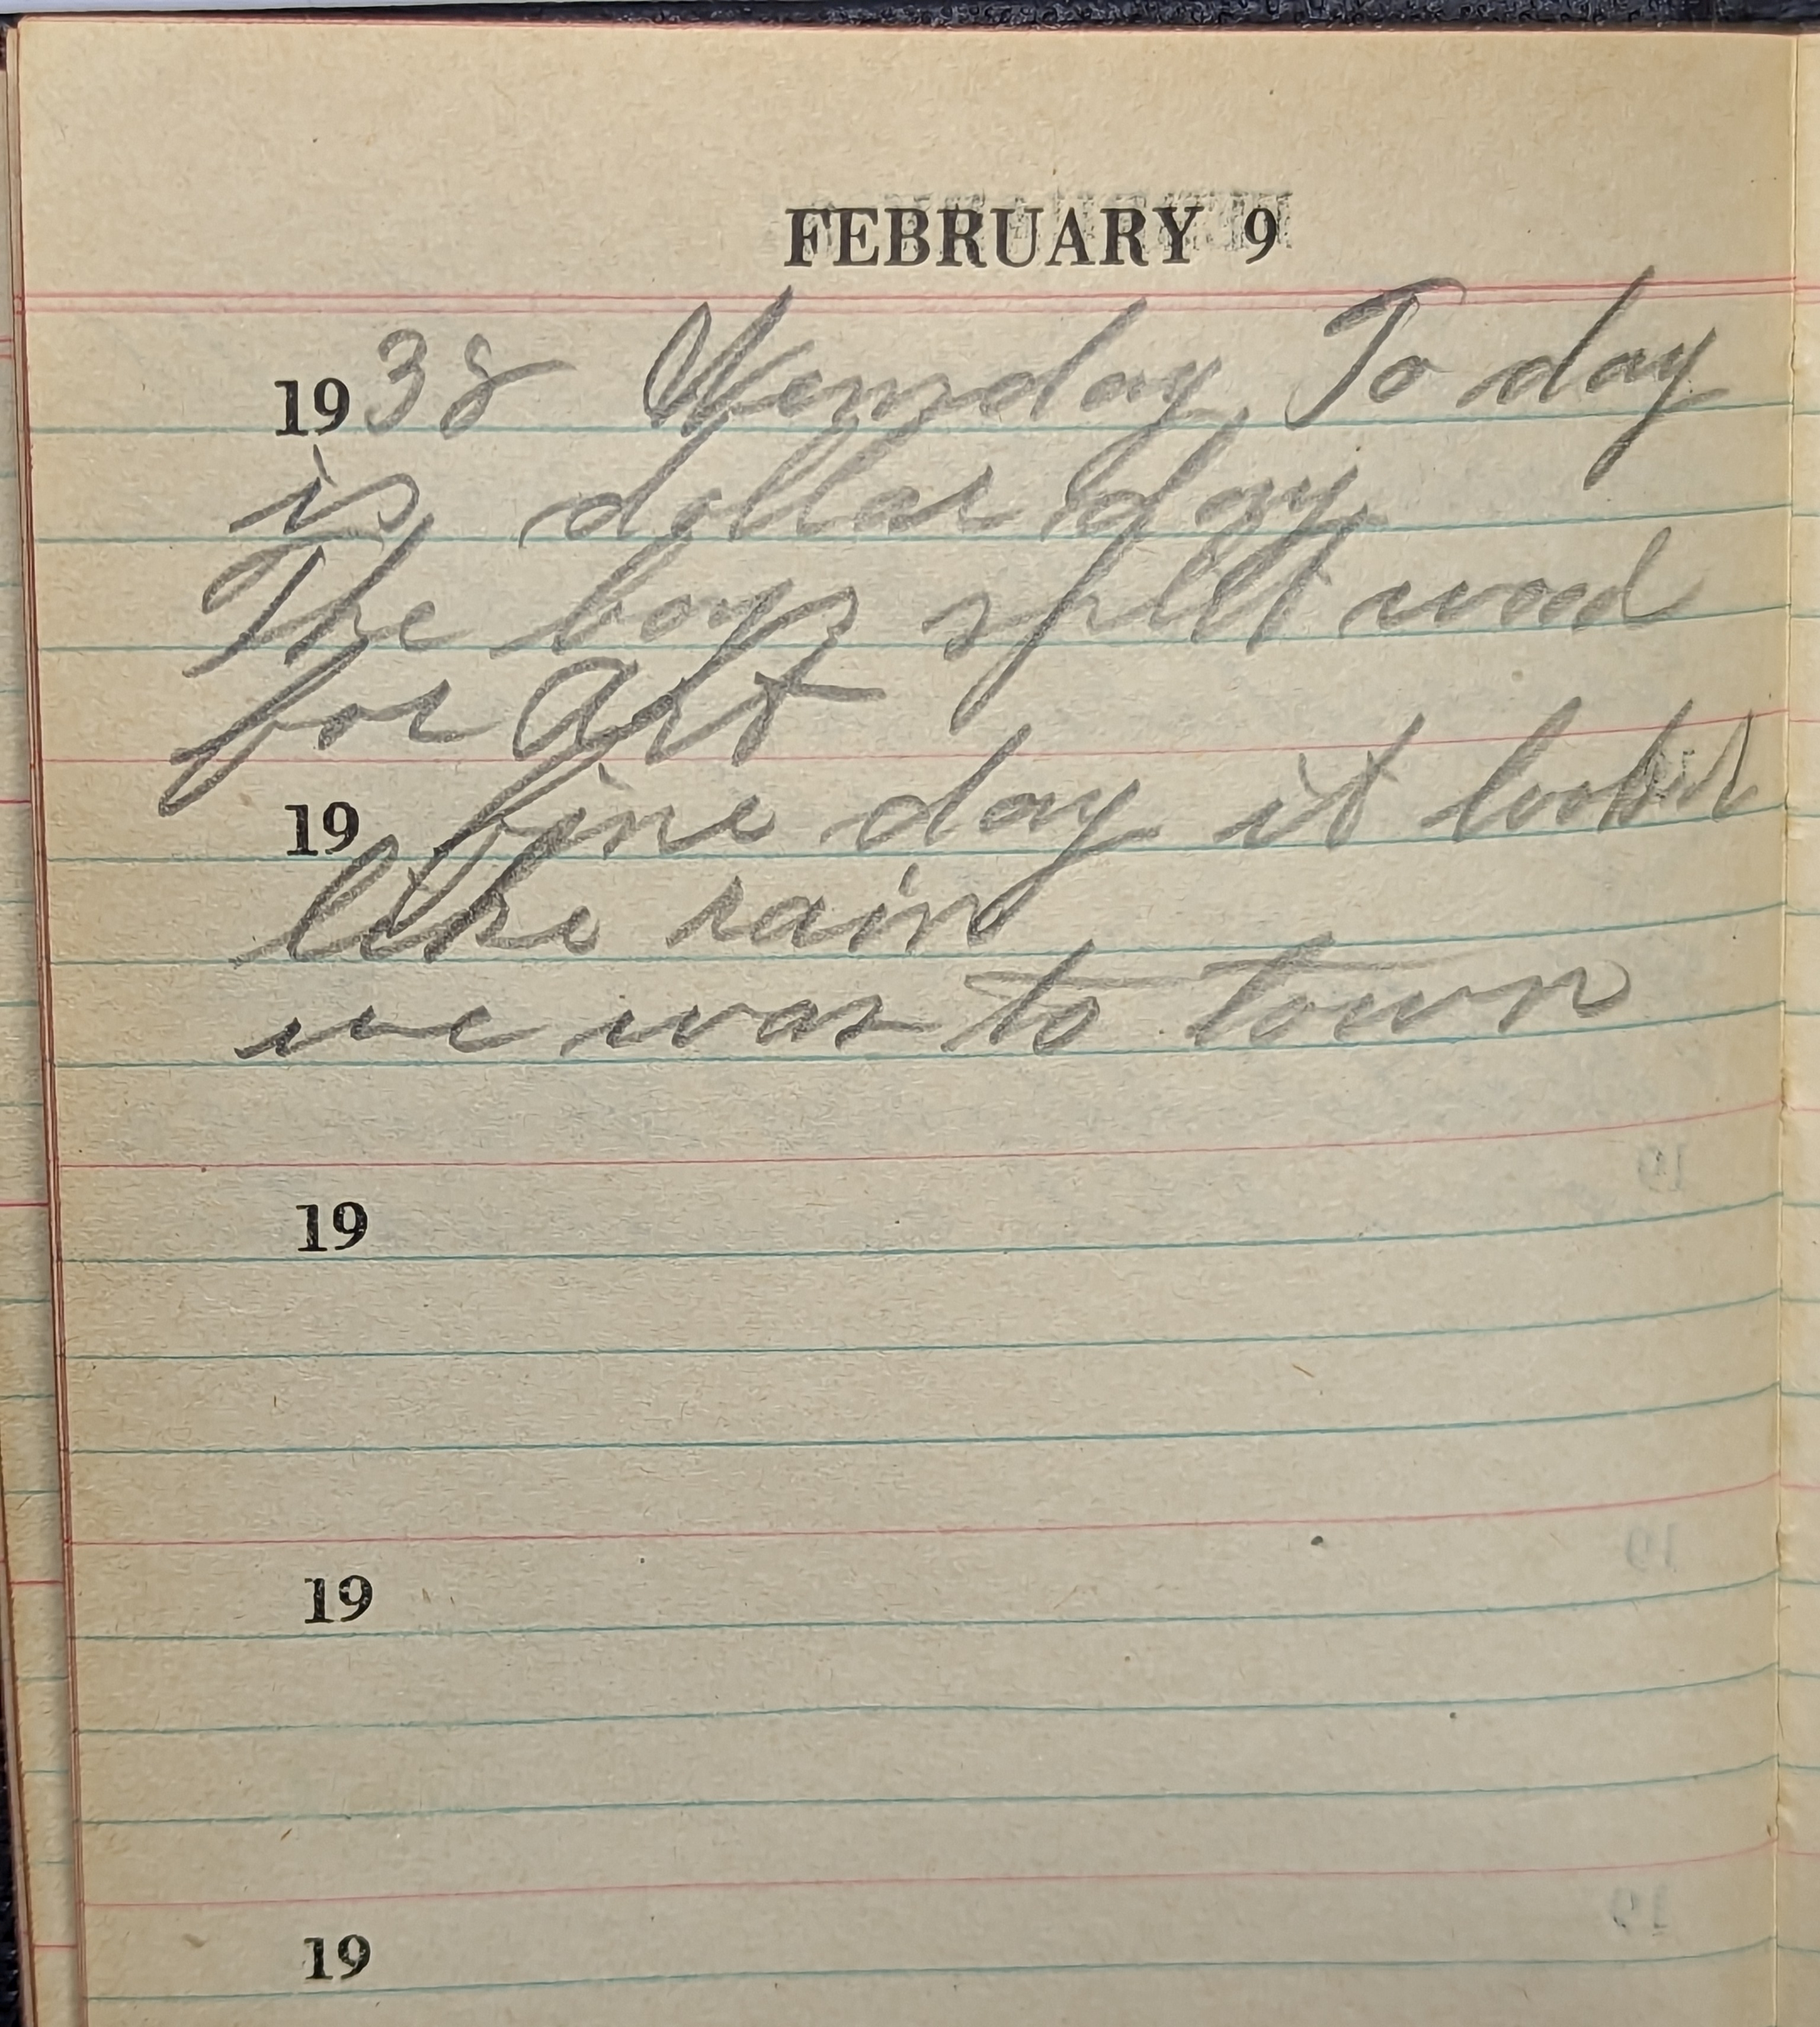 FEBRUARY 9
1938 Wensday To day
is dollar day
The boys split wood
for Art
19 fine day it looked
like rain
we was to town
19
19
19